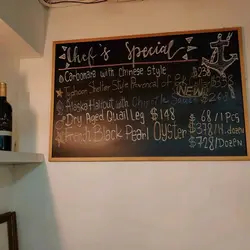 Chef's Special
Carbonara with Chinese Style $238
Typhoon Shelter Style
NEW
Alaska Halibut with Chipotle Sauce
Dry Aged Quail Leg $148
$68/1Pcs
French Black Pearl Oyster $378/½ dozen
$728/Dozen